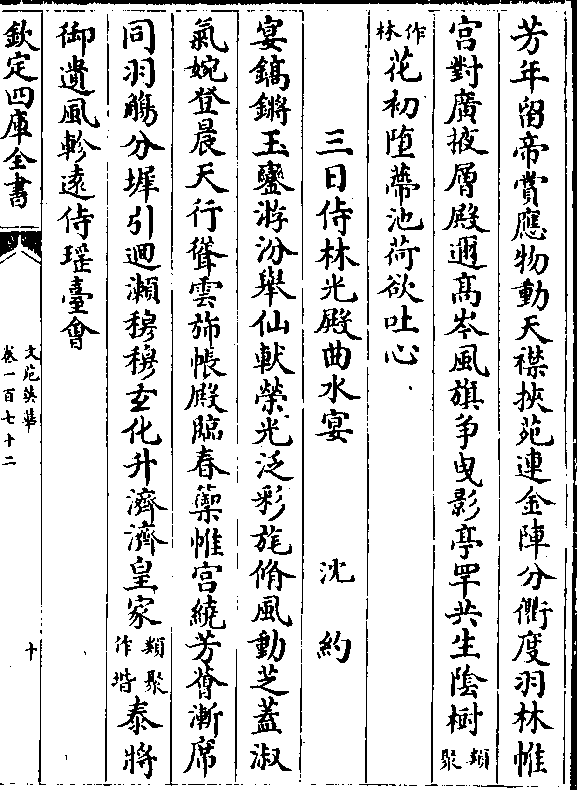 芳年留帝賞應物動天襟挾苑連金陣分衢度羽林帷
宮對廣掖層殿邇髙岑風旗争曳影亭罕共生陰樹類聚
作林花初墮蔕池荷欲吐心
三日侍林光殿曲水宴 沈約
宴鎬鏘玉鑾游汾舉仙軑榮光泛彩旄脩風動芝蓋淑
氣婉登晨天行聳雲斾帳殿臨春籞帷宮繞芳薈漸席
同羽觴分墀引迴瀨穆穆玄化升濟濟皇家類聚作堦泰將
御遺風軫遠侍瑶臺會
欽定四庫全書
文苑英華
卷一百七十二
十